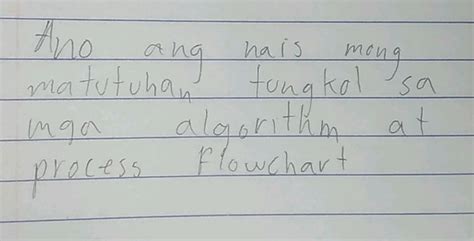 Ano ang nais mong
matutuhan tungkol sa
mga algorithm at
process flowchart